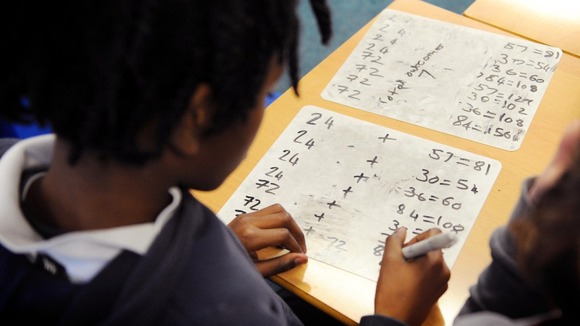 24
24
24
72
72
72
72
total outcomes
7
57=81
=54
36=60
84=108
57=129
30=102
36=108
84=156
24 + 57=81
24 + 30=54
24 + 36=60
24 + 84=108
72 +
72 +
72